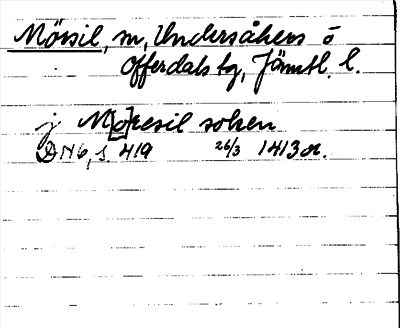 Mörsil, sn, Undersåkers o
Offerdals tg, Jämtl. l.
j M[o]resil soken
DN 6, s. 419 26/3 1413 or.